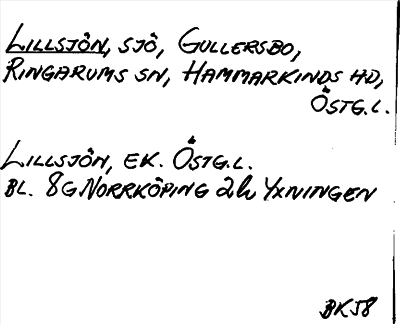 LILLSJÖN, SJÖ, GULLERSBO,
RINGARUMS SN, HAMMARKINDS HD,
ÖSTG.L.
LILLSJÖN, EK. ÖSTG.L.
BL. 8G NORRKÖPING 2h YXNINGEN
BKJ8